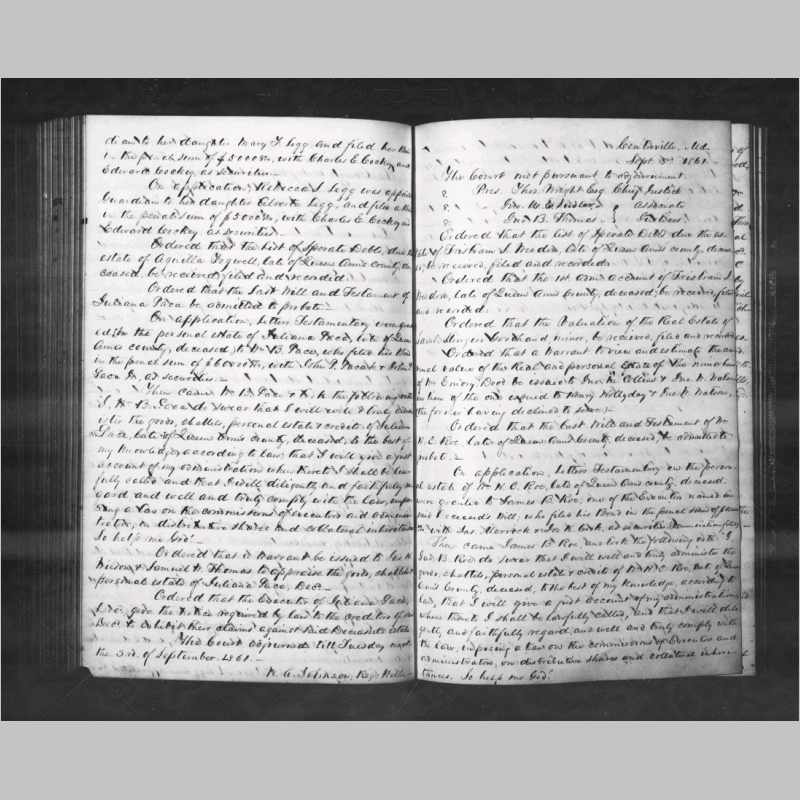 dian to her daughter Mary F. Legg and filed her Bond
in the penal sum of $5000.00, with Charles E. Cockey and
Edward Cockey as securities.
On application, Rebecca Legg was appointed
Guardian to her daughter Alverta Legg, and filed a Bond
in the penal sum of $5000.00, with Charles E. Cockey and
Edward Cockey as securities.
Ordered that the List of Sperate Debts, due the
estate of Agnella late of Queen Anns county, de
ceased, be received, filed and recorded.
Ordered that the Last Will and Testament of
Juliana Paca be admitted to probate.
On application, Letters Testamentary were grant
ed on the personal estate of Juliana Paca, late of Queen
Anns county, deceased, to Wm B. Paca, who filed his Bond
in the penal sum of with John P. Paca & John
Paca Jr. as securities.
Then came Wm B. Paca & took the following oath
I, Wm B. Paca do swear that I will well & truly admin
ister the goods, chattels, personal estate & credits of Juliana
Paca, late of Queen Anns County, deceased, to the best of
my Knowledge, according to law, that I will give a just
account of my administration when thereto I shall be law
fully called and that I will diligently and faithfully re
gard and well and truly comply with the law, impo
sing a tax on the commissions of executors and adminis
trators, on distributive shares and collateral inheritances
So help me God.
Ordered that a Warrant be issued to Jas. K.
& Samuel W. Thomas to appraise the goods, chattels &
personal estate of Juliana Paca, Decd.
Ordered that the Executor of Juliana Paca,
Decd. give the notice required by law to the creditors of said
Decd. to exhibit their claims against said Deceased's estate
The Court adjourned till Tuesday next
the 3rd of September 1861.
W. A. Johnson, Regr. Wills
Centreville, Md.
Sept. 3rd 1861.
The Court met pursuant to adjournment.
Pres. Thos. Wright Esq. Chief Justice
Associate
Jno. B. Thomas Justices
Ordered that the list of Sperate Debts due the es
tate of Tristram S. late of Queen Anns county, deceas
ed, be received, filed and recorded.
Ordered that the 1st admn. account of Tristram S.
late of Queen Anns County, deceased, be received, filed
and recorded.
Ordered that the Valuation of the Real Estate of
Sarah minor, be received, filed and recorded.
Ordered that a Warrant to view and estimate the an
nual value of the Real and personal Estate of the minor
of Wm Emory Decd be issued to Collins &
in lieu of the one issued to Henry Hollyday &
the former having declined to serve.
Ordered that the Last Will and Testament of Wm
H. C. Roe late of Queen Anns County, deceased, be admitted to
probate.
On application, Letters Testamentary on the person
al estate of Wm H. C. Roe, late of Queen Anns county, deceased,
were granted to James B. Roe, one of the Executors named in
said Deceased's Will, who filed his Bond in the penal sum of
with Jas. Merrick as securities
Then came James B. Roe and took the following oath "I
Jas. B. Roe do swear that I will well and truly administer the
goods, chattels, personal estate & credits of Wm H. C. Roe, late of Queen
Anns County, deceased, to the best of my Knowledge, according to
law, that I will give a just account of my administration
when thereto I shall be lawfully called, and that I will dili
gently and faithfully regard, and well and truly comply with
the law, imposing a tax on the commissions of Executors and
administrators, on distributive shares and collateral inheri
tances. So help me God."